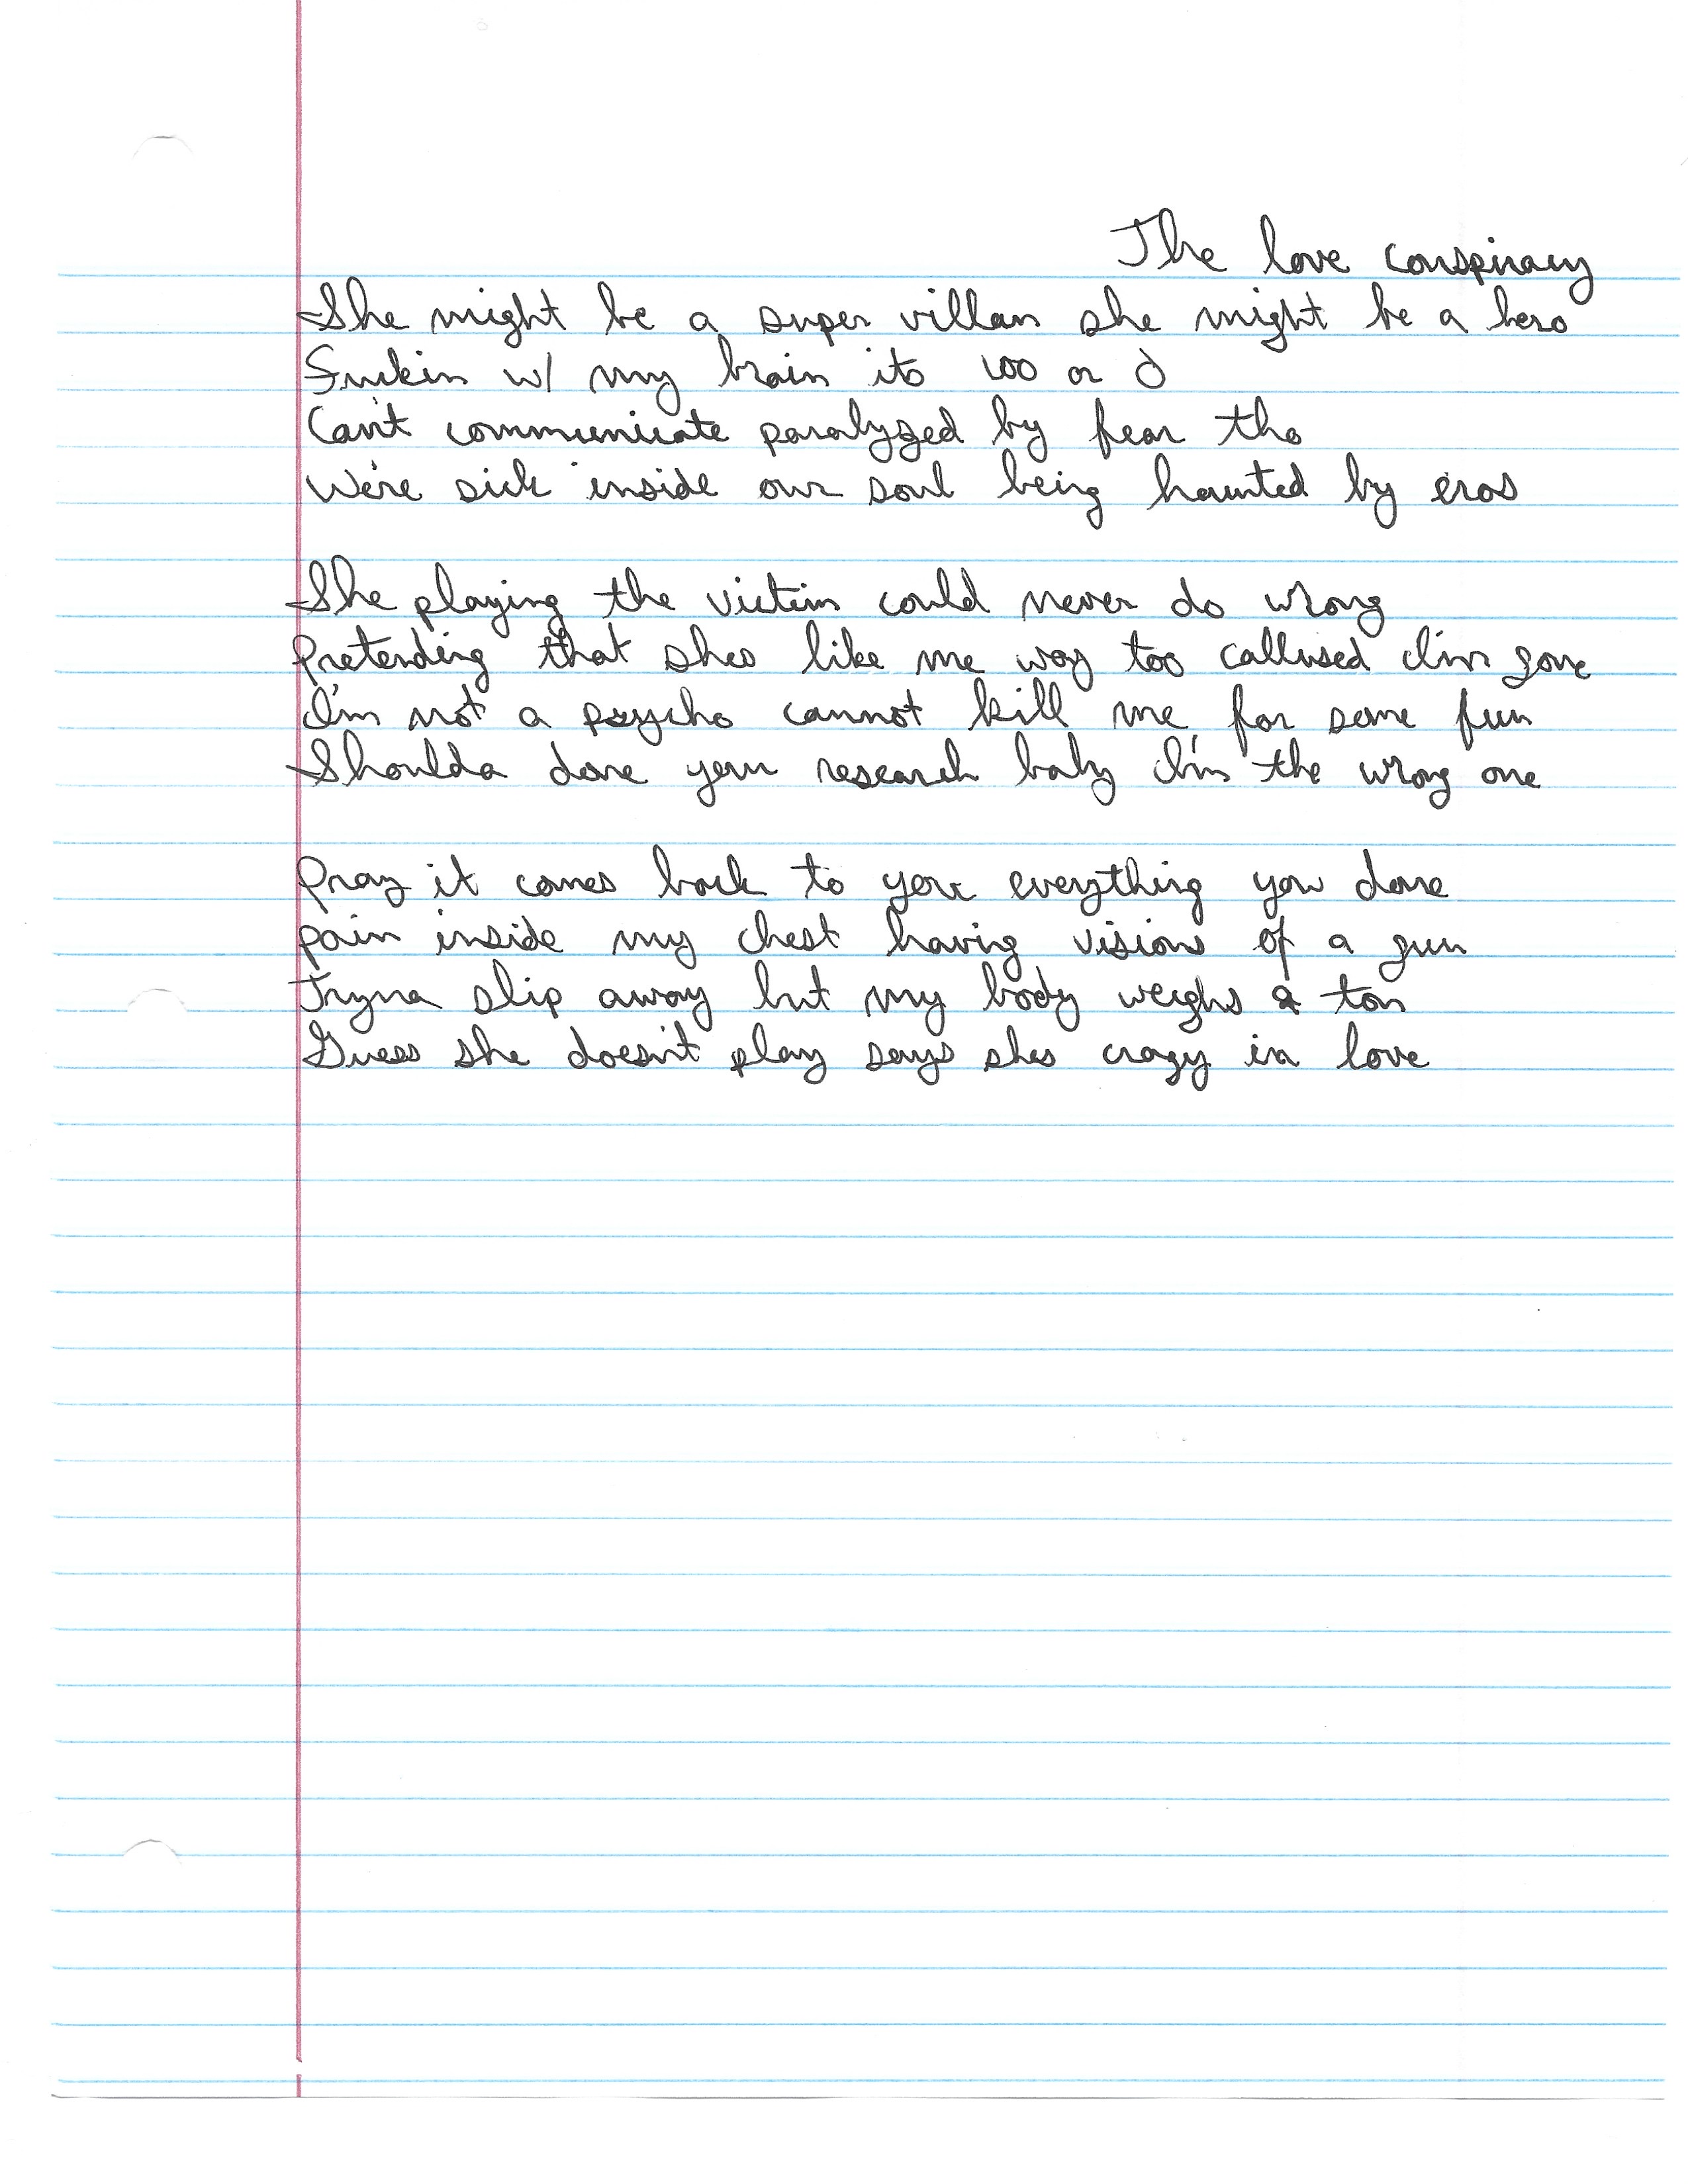 The love conspiracy
She might be a super villan she might be a hero
Fuckin w/ my brain its 100 or 0
Can't communicate paralyzed by fear tho
We're sick inside our soul being haunted by eros
She playing the victim could never do wrong
Pretending that shes like me way too callused I'm gone
I'm not a psycho cannot kill me for some fun
Shoulda done your research baby I'm the wrong one
Pray it comes back to you everything you done
pain inside my chest having visions of a gun
Tryna slip away but my body weighs a ton
Guess she doesn't play says shes crazy in love